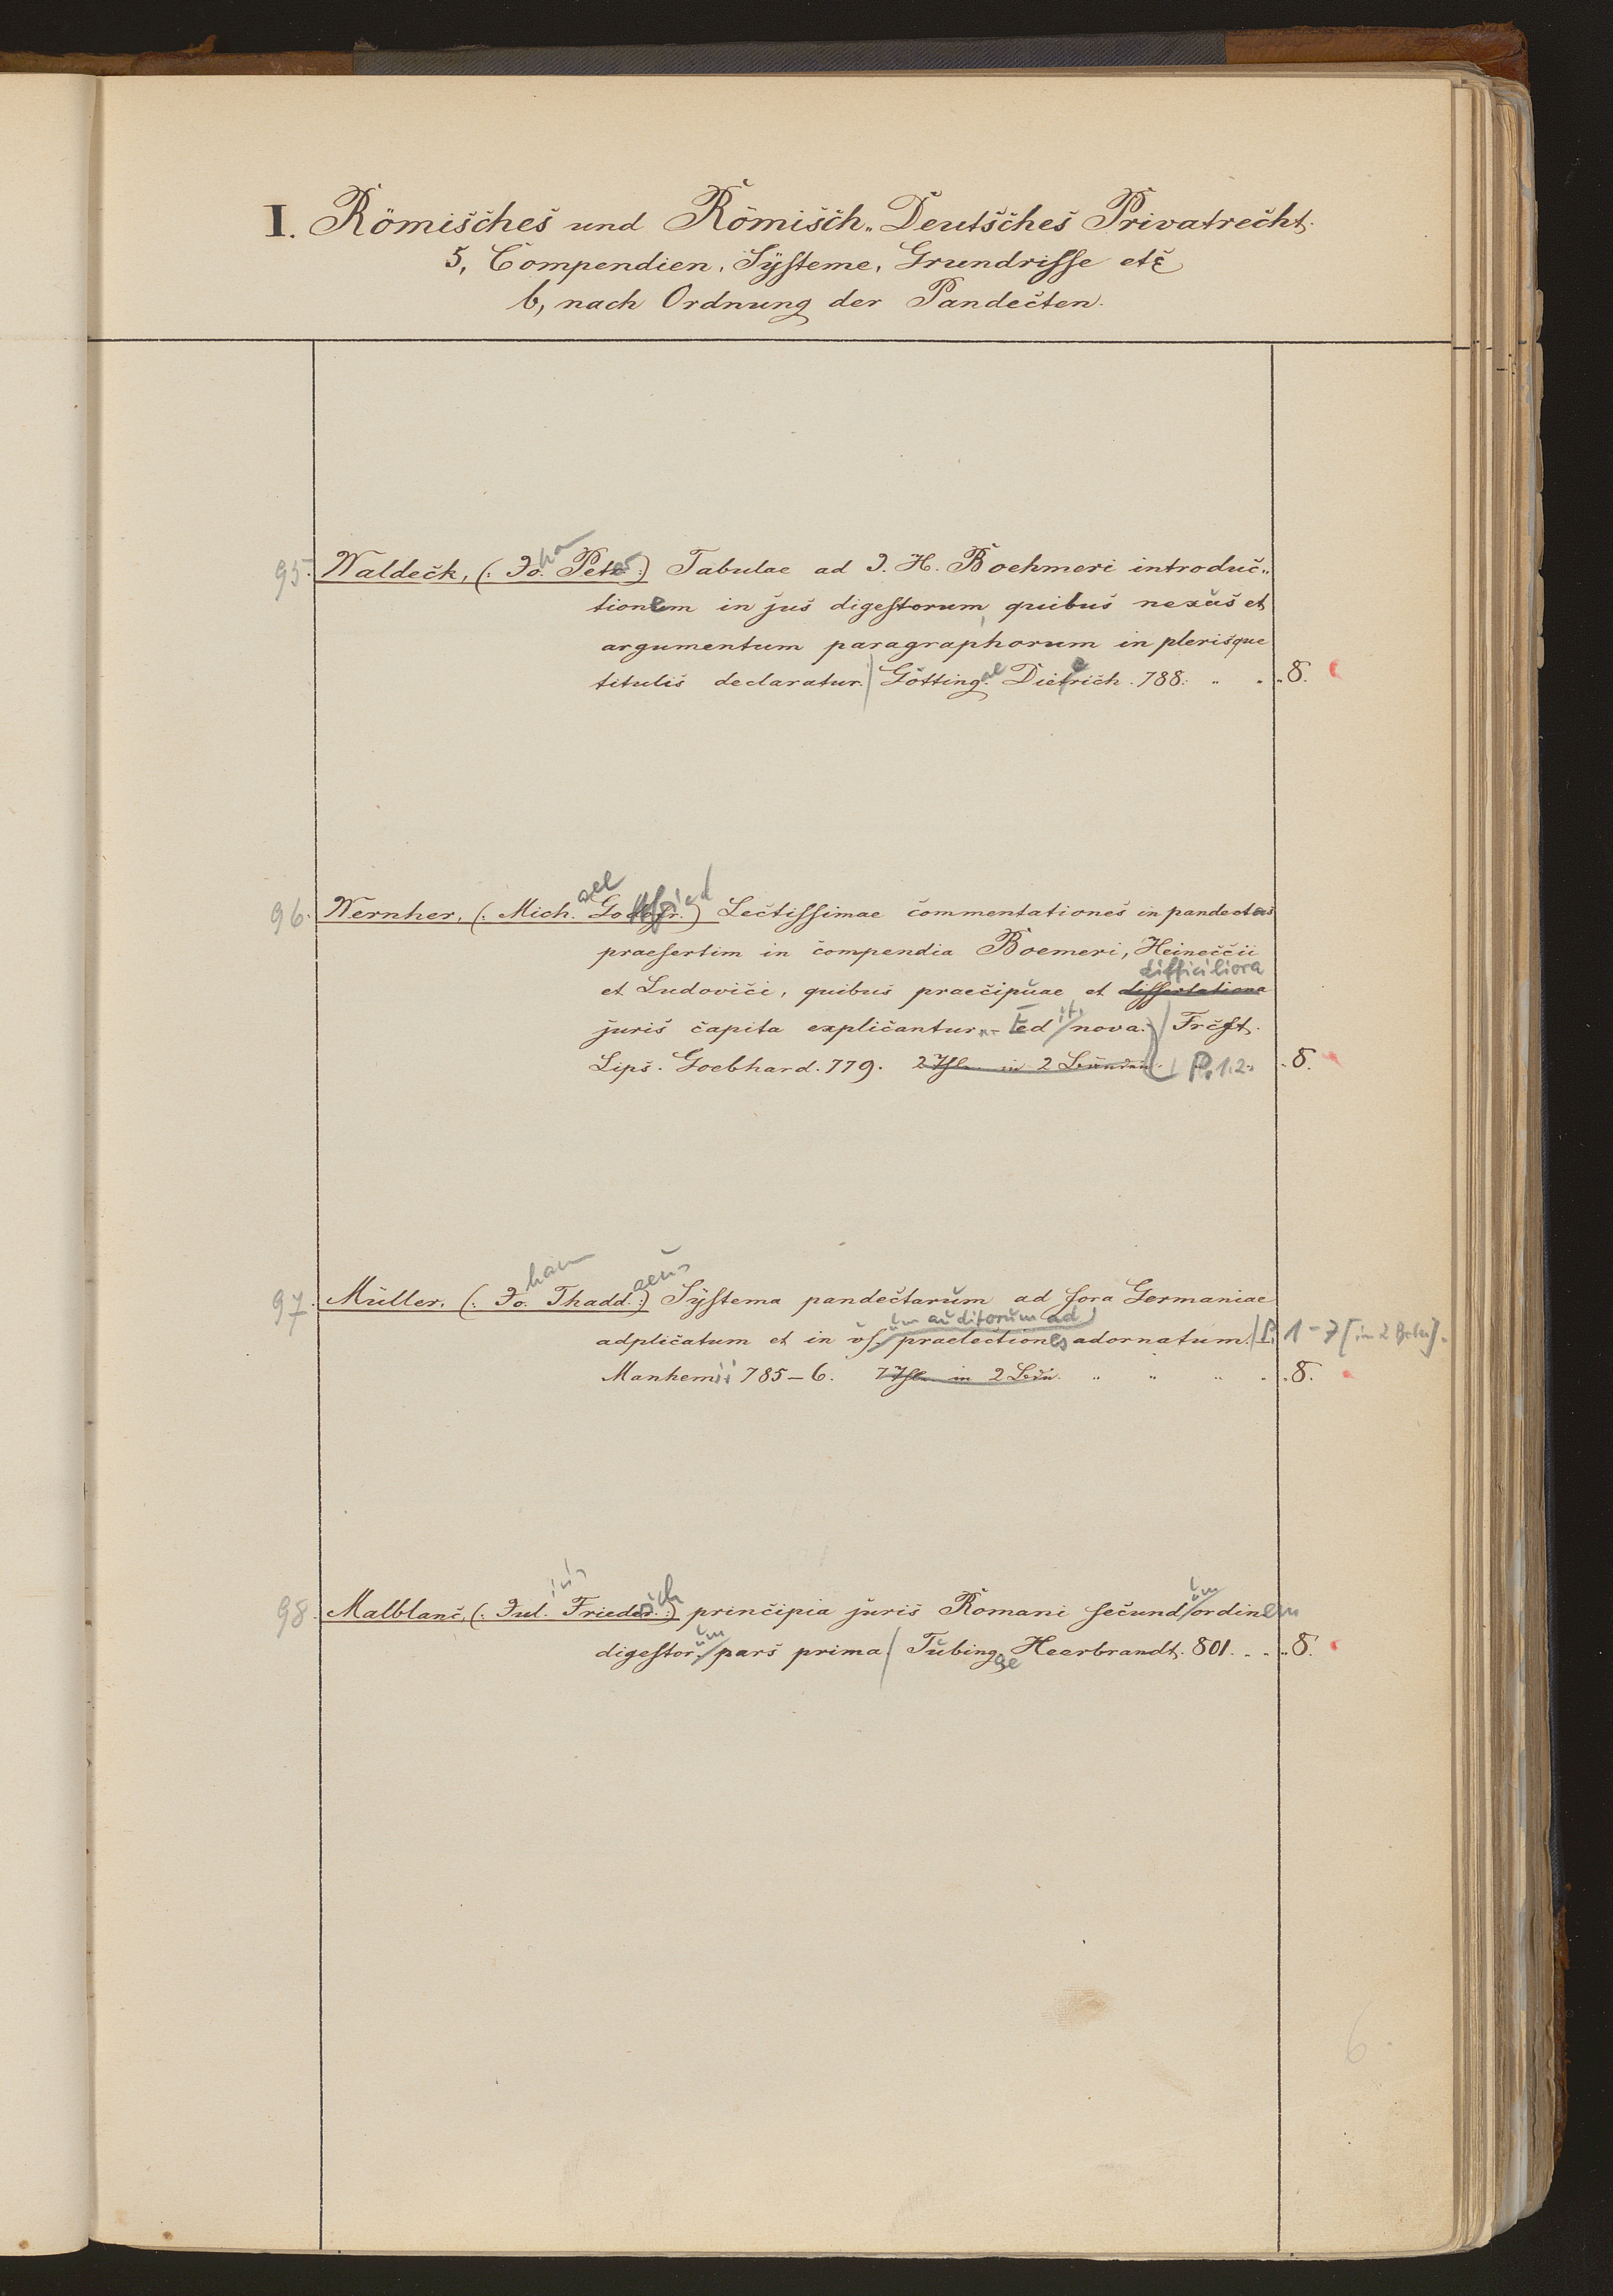 I. Römisches und Römisch-Deutsches Privatrecht.
5, Compendien, Systeme, Grundrisse etc
b, nach Ordnung der Pandecten.
95. Waldeck, (: Jo. Peter :) Tabulae ad J. H. Boehmeri introduc-
tionem in jus digestorum, quibus nexus et
argumentum paragraphorum in plerisque
titulis declaratur. | Götting.ae Dieterich. 788. 8.
ael ttfried
96. Wernher, (: Mich. Godofr. :) Lectissimae commentationes in pandectas
praesertim in compendia Boemeri, Heineccii
difficiliora
et Ludovici, quibus praecipuae et dissertationa
juris capita explicantur. – Ed it. nova. | Frcft.
Lips. Goebhard. 779. 2 Thle. in 2 Bänden. P. 1.2. 8.
han aeus
97. Müller, (: Jo. Thadd. :) Systema pandectarum ad fora Germaniae
um auditorum ad
adplicatum et in us. praelectiones adornatum. | P. 1-7 [in 2 Bden].
Manhemii 785–6. 7 Thle. in 2 Bdn. 8.
ius ich um
98. Malblanc, (: Jul. Frieder. :) principia juris Romani secund. ordinem
um
digestor. pars prima. | Tubing.ae Heerbrandt. 801. 8.
6